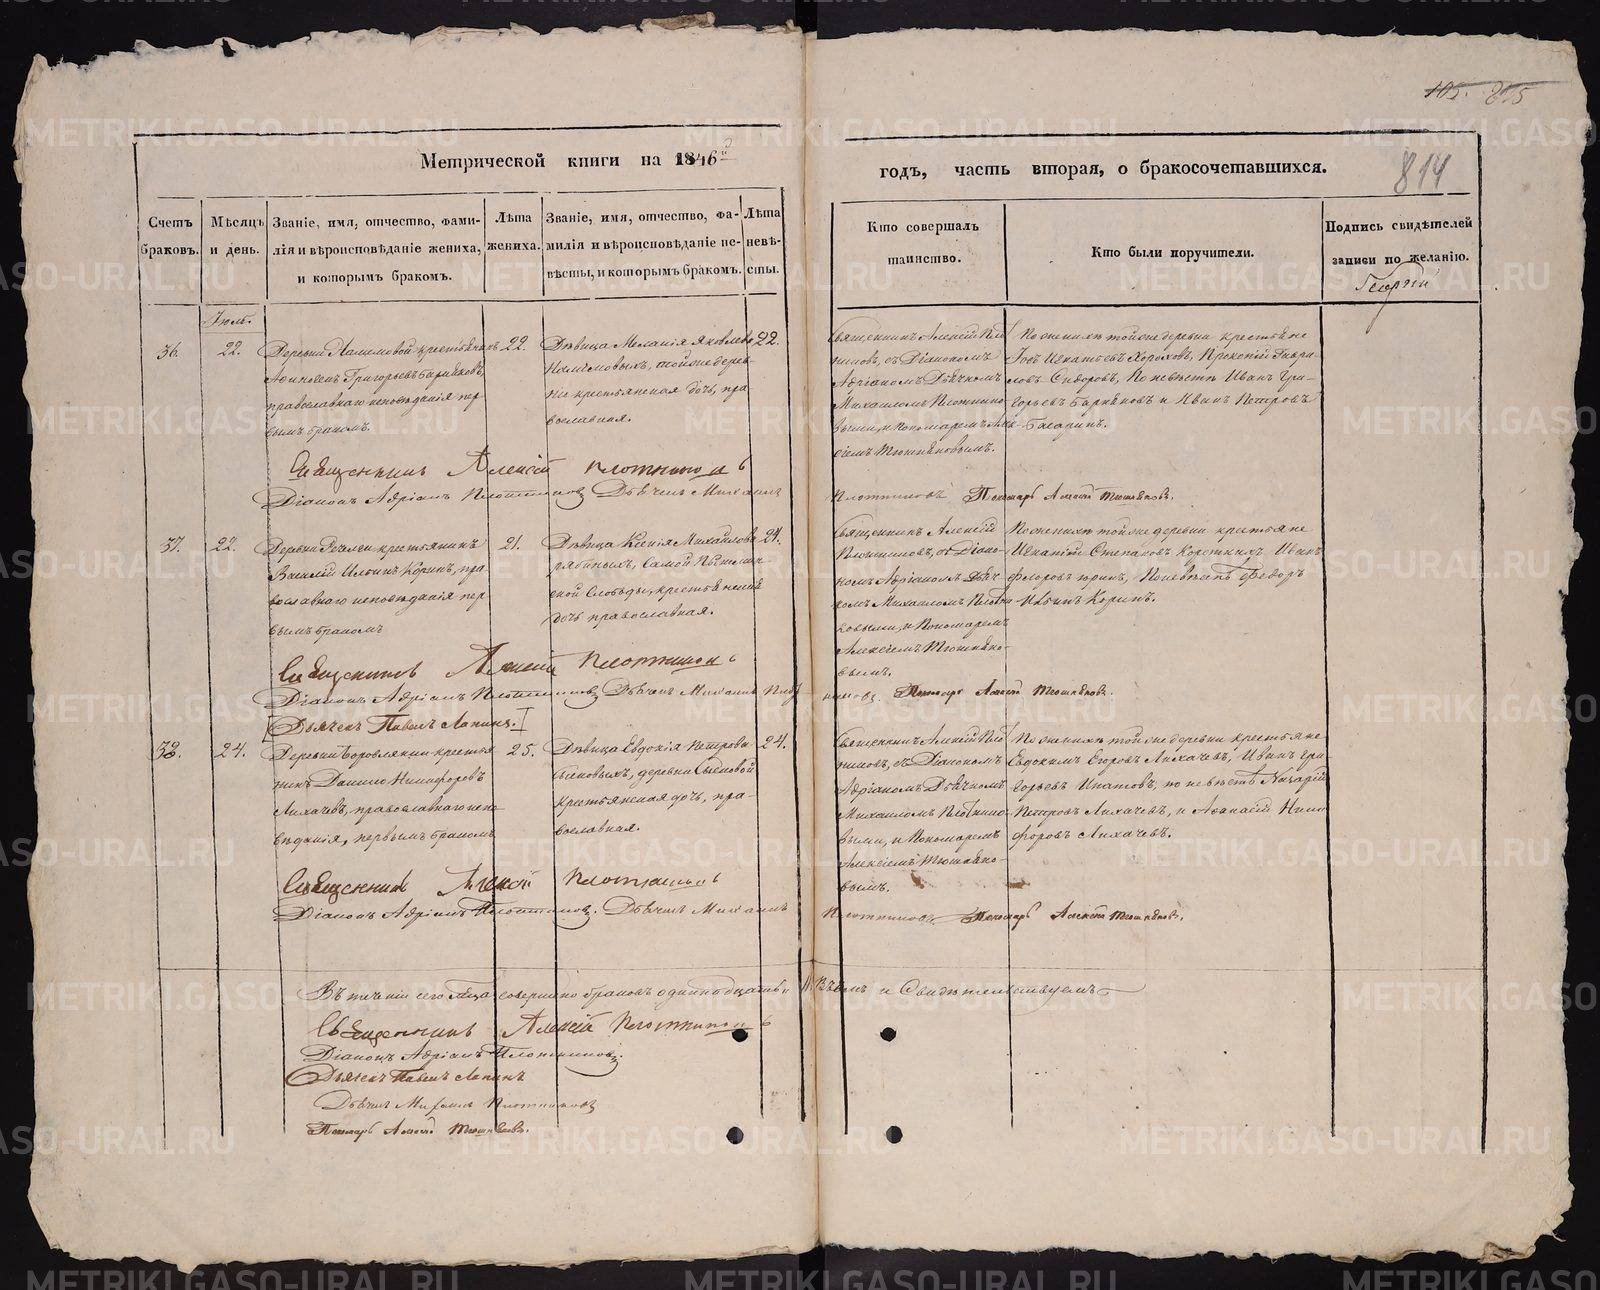 105. 815
Метрической книги на 1846й
годъ, часть вторая, о бракосочетавшихся.
814
Счетъ браковъ.
Мѣсяцъ и день.
Званіе, имя, отчество, фами-
лія и вѣроисповѣданіе жениха,
и которымъ бракомъ.
Лѣта
жениха.
Званіе, имя, отчество, фа-
милія и вѣроисповѣданіе не-
вѣсты, и которымъ бракомъ.
Лѣта
невѣ-
сты.
Кто совершалъ
таинство.
Кто были поручители.
Подпись свидѣтелей
записи по желанію.
Георгій
Іюль.
36.
22.
Деревни крестьянинъ
Григорьевъ Баряковъ,
православнаго исповѣданія пер
вымъ бракомъ.
22.
Дѣвица Меланія Яковлева
тойже дерев
ни крестьянская дочь, пра
вославная.
22.
Священникъ Алексій Плот
никовъ, съ Діакономъ
Адріаномъ Дьячкомъ
Михаиломъ Плотнико
выми, и Пономаремъ Але
ксіемъ Тюшняковымъ.
По женихѣ тойже деревни крестьяне
Игнатьевъ Прокопій Гаври
ловъ Сидоровъ, По невѣстѣ Иванъ Гри-
горьевъ Баряковъ и Иванъ Петровъ
Священникъ Алексій Плотниковъ
Діаконъ Адріанъ Плотниковъ Дьячекъ Михаилъ
Плотниковъ Пономарь Алексій Тюшняковъ.
37.
22.
Деревни Речелги крестьянинъ
Василій Ильинъ Коринъ, пра
вославнаго исповѣданія пер
вымъ бракомъ
21.
Дѣвица Ксенія Михайлова
Рябиныхъ, самой
ской Слободы, крестьянская
дочь православная.
24.
Священникъ Алексій
Плотниковъ, съ Діако-
номъ Адріаномъ Дьяч-
комъ Михаиломъ Плотни
ковыми, и Пономаремъ
Алексіемъ Тюшняко-
вымъ.
По женихѣ тойже деревни крестьяне
Игнатій Степановъ Коротких Иванъ
Флоровъ Юринъ, По невѣстѣ Федоръ
Ильинъ Коринъ.
Священникъ Алексій Плотниковъ
Діаконъ Адріанъ Плотниковъ Дьячекъ Михаилъ Плот
никовъ. Пономарь Алексій Тюшняковъ.
Дьячекъ Павелъ Лапинъ.
38.
24.
Деревни Боровлянки крестья
нинъ Данило Никифоровъ
Лихачевъ, православнаго испо
вѣданія, первымъ бракомъ
25.
Дѣвица Евдокія Петрова
Сысковыхъ, деревни Сысковой
крестьянская дочь, пра-
вославная.
24.
Священникъ Алексій Плот
никовъ, съ Діакономъ
Адріаномъ Дьячкомъ
Михаиломъ Плотнико
выми, и Пономаремъ
Алексіемъ Тюшняко-
вымъ.
По женихѣ тойже деревни крестьяне
Евдокимъ Егоровъ Лихачевъ, Иванъ Гри-
горьевъ Ипатовъ, по невѣстѣ Назарій
Петровъ Лихачевъ, и Афанасій Ники
форовъ Лихачевъ.
Священникъ Алексій Плотниковъ
Діаконъ Адріанъ Плотниковъ. Дьячекъ Михаилъ
Плотниковъ. Пономарь Алексій Тюшняковъ.
Въ теченіи сего мѣсяца совершено браковъ одиннадцать въ чемъ и Свидѣтельствуемъ
Священникъ Алексій Плотниковъ
Діаконъ Адріанъ Плотниковъ.
Дьячекъ Павелъ Лапинъ
Дьячекъ Михаилъ Плотниковъ
Пономарь Алексій Тюшняковъ.
METRIKI.GASO-URAL.RU